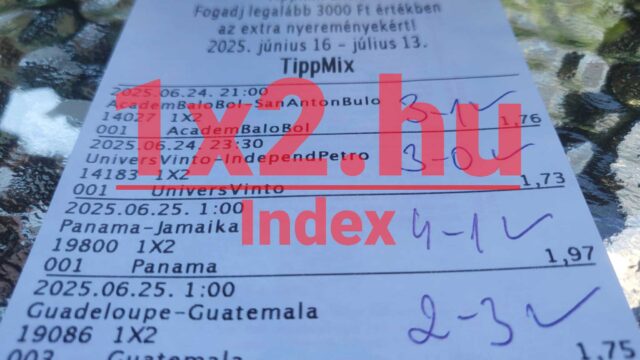 Fogadj legalább 3000 Ft értékben
az extra nyereményekért!
2025. június 16 - július 13.
TippMix
2025.06.24. 21:00
AcademBaloBol-SanAntonBulo 3-1 ✓
14027 1X2 1,76
001 AcademBaloBol
2025.06.24. 23:30
UniversVinto-IndependPetro 3-0 ✓
14183 1X2 1,73
001 UniversVinto
2025.06.25. 1:00
Panama-Jamaika 4-1 ✓
19800 1X2
001 Panama 1,97
2025.06.25. 1:00
Guadeloupe-Guatemala 2-3 ✓
19086 1X2
003 Guatemala 1,75
1x2.hu
Index